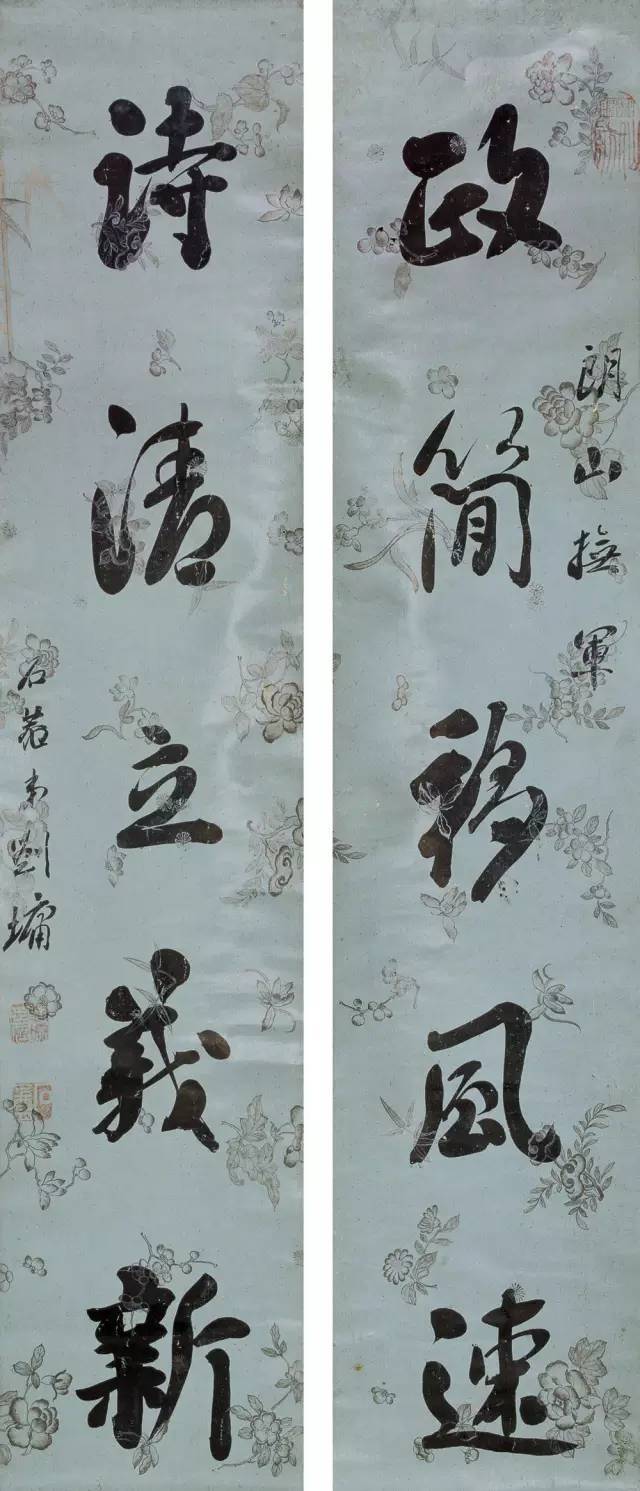 政簡移風速
朗山撫軍
詩清立義新
石菴弟劉墉